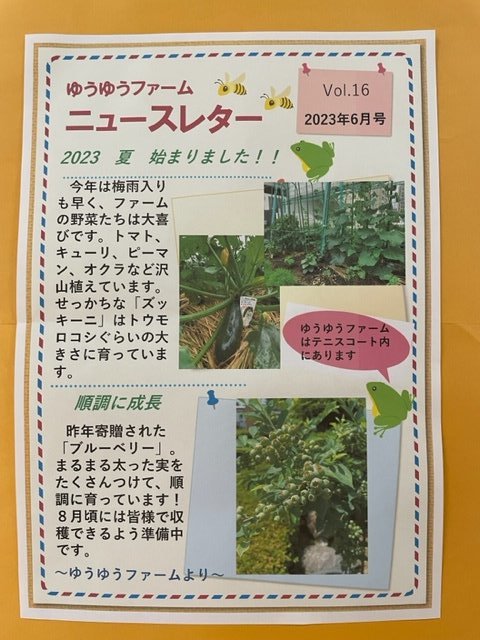 ゆうゆうファーム
ニュースレター
Vol.16
2023年6月号
2023　夏　始まりました！！
今年は梅雨入り
も早く、ファーム
の野菜たちは大喜
びです。トマト、
キューリ、ピーマ
ン、オクラなど沢
山植えています。
せっかちな「ズッ
キーニ」はトウモ
ロコシぐらいの大
きさに育っていま
す。
ゆうゆうファーム
はテニスコート内
にあります
順調に成長
昨年寄贈された
「ブルーベリー」。
まるまる太った実を
たくさんつけて、順
調に育っています！
８月頃には皆様で収
穫できるよう準備中
です。
～ゆうゆうファームより～